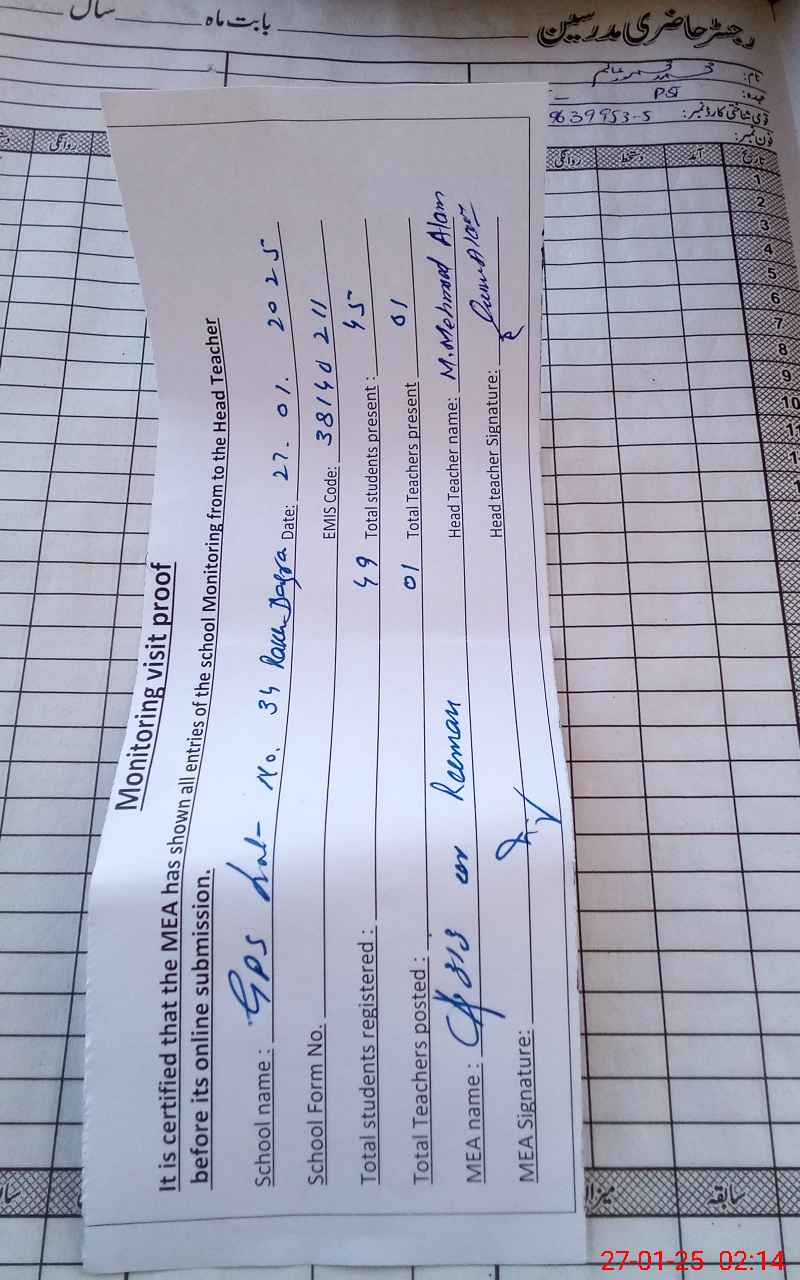 رجسٹر حاضری مدرسین
بابت ماہ ________ سال
نام: محمد محمود عالم
عہدہ: PST
قومی شناختی کارڈ نمبر: 9639953-5
فون نمبر:
تاریخ آمد دستخط روانگی
1
2
3
4
5
6
7
8
9
10
11
Monitoring visit proof
It is certified that the MEA has shown all entries of the school Monitoring from to the Head Teacher
before its online submission.
School name : GPS No. 34 Date: 27. 01. 2025
School Form No. EMIS Code: 38140 211
Total students registered : 49 Total students present : 45
Total Teachers posted : 01 Total Teachers present 01
MEA name : Reeman Head Teacher name: M. Mehmood Alam
MEA Signature: Head teacher Signature:
سابقہ
27-01-25 02:14